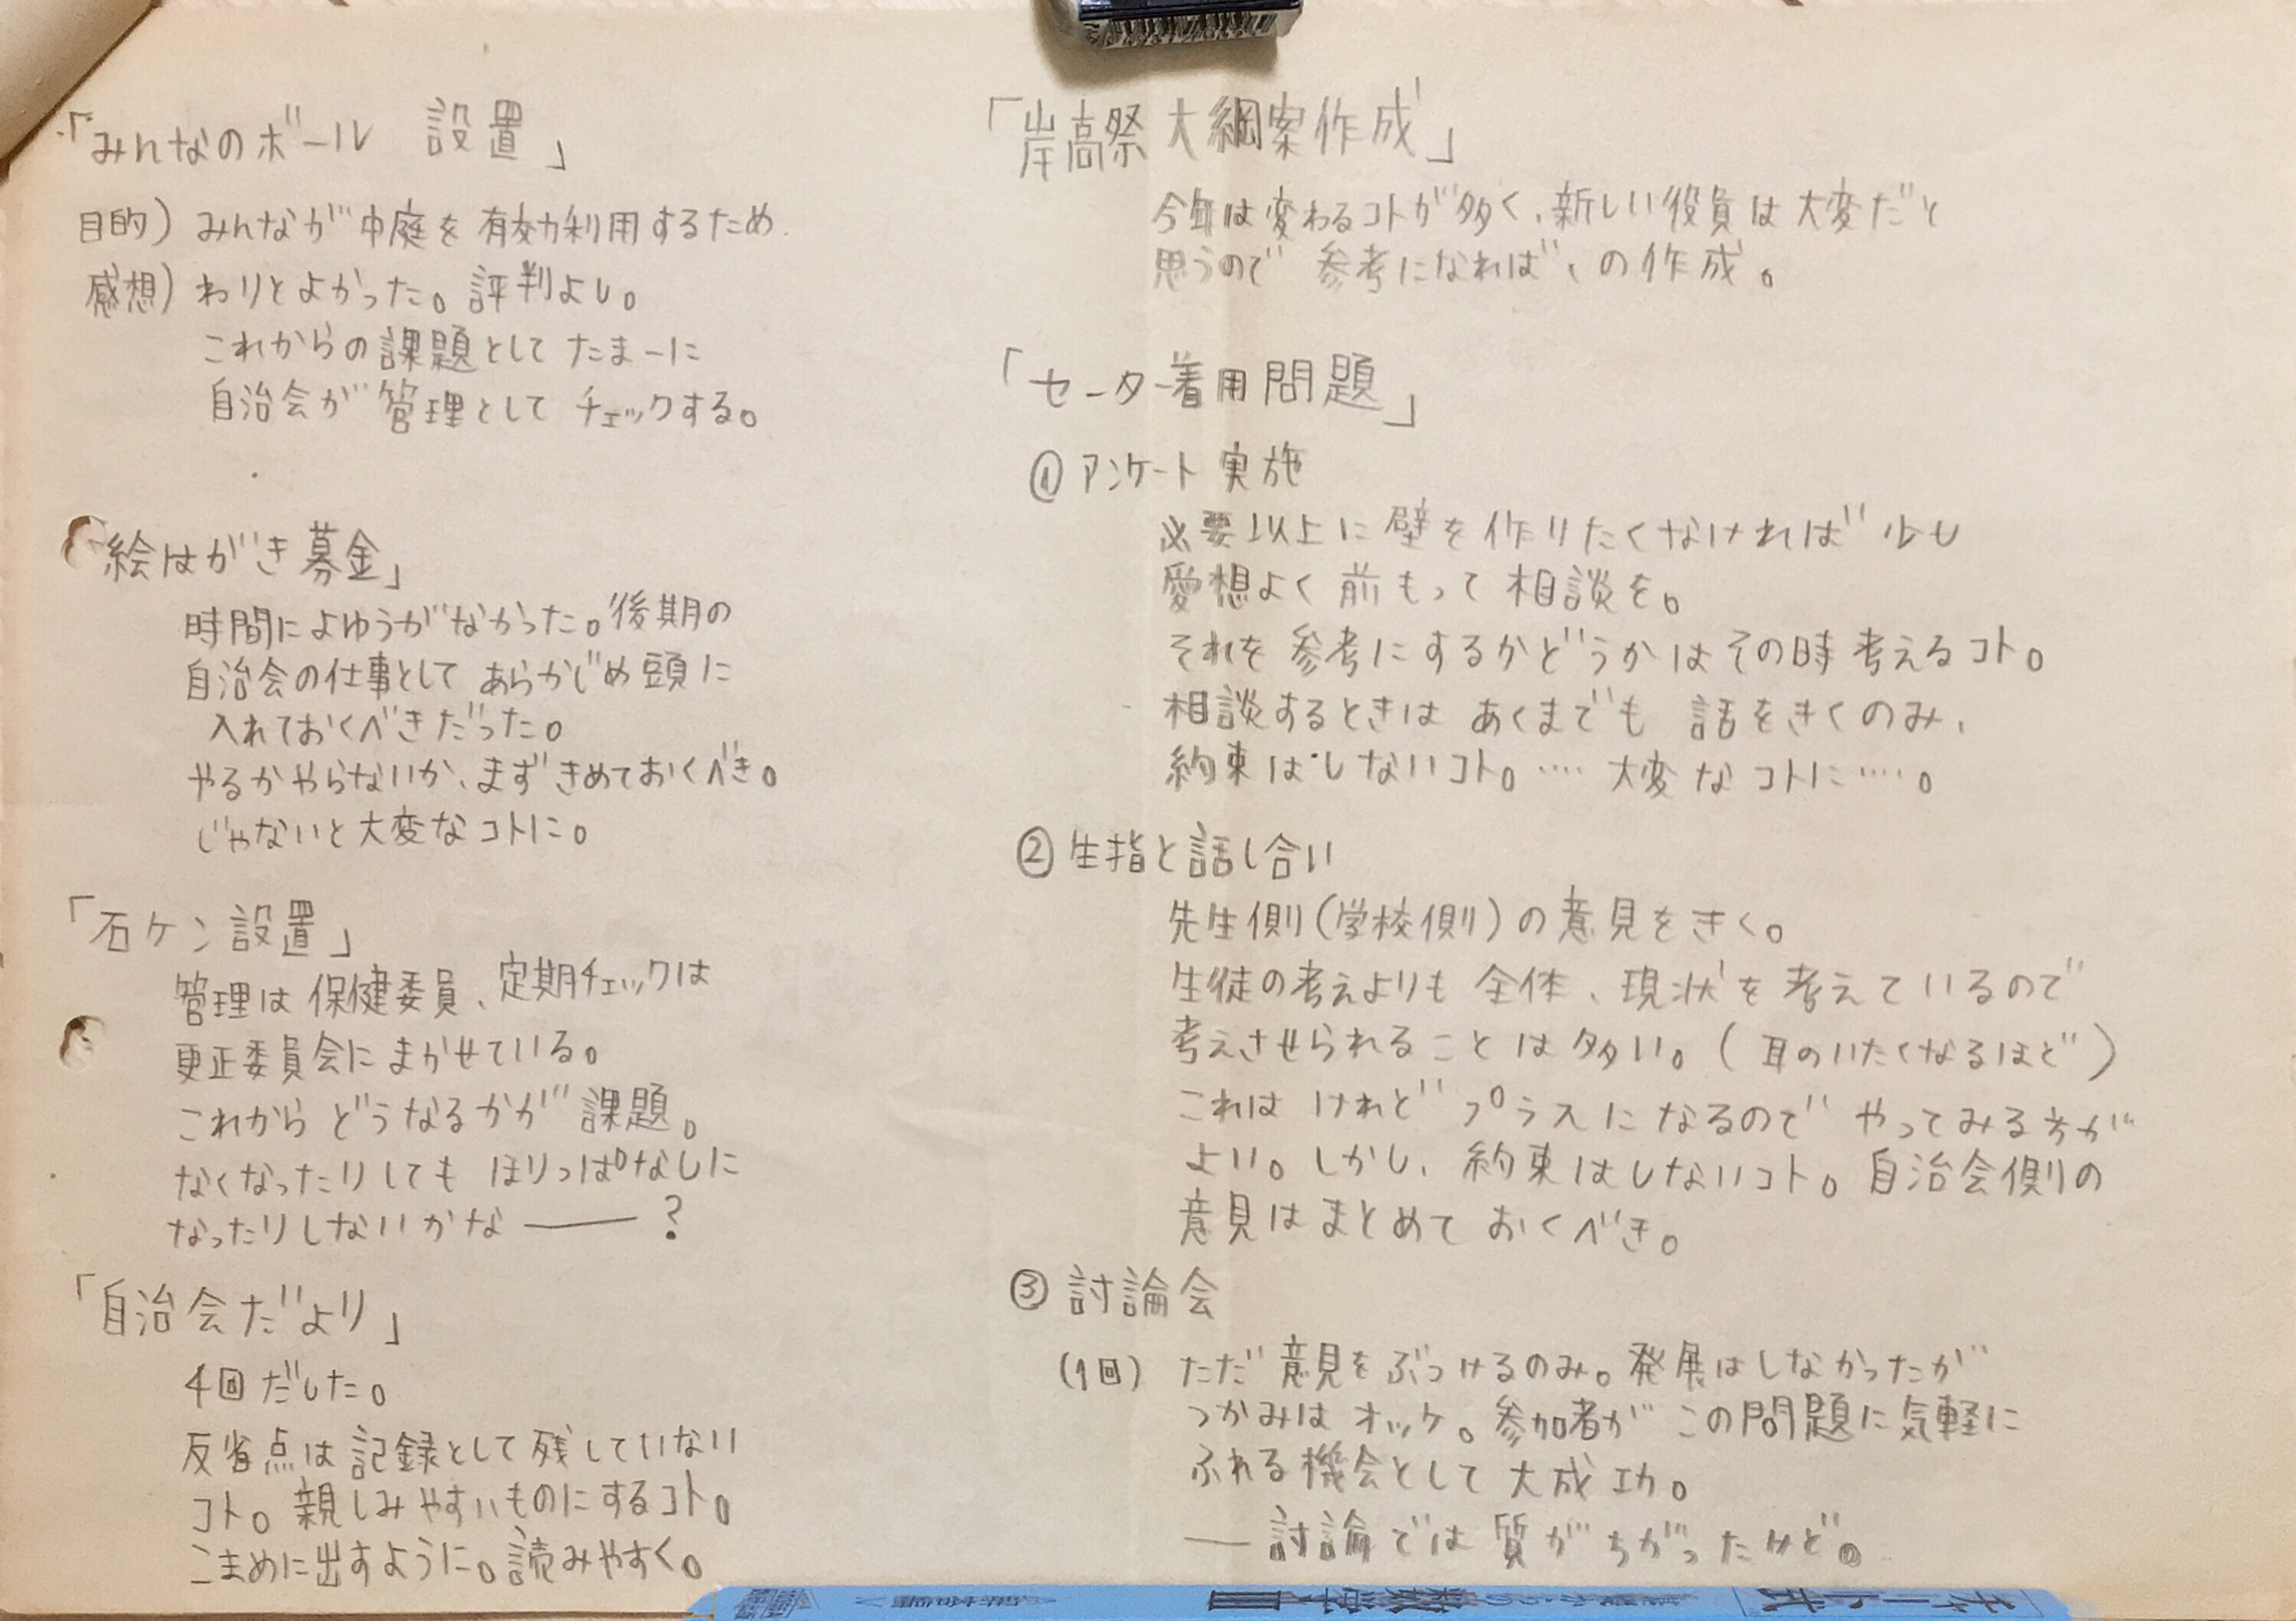 「みんなのボール 設置」
目的）みんなが中庭を有効利用するため.
感想）わりとよかった。評判よし。
これからの課題として たまーに
自治会が管理として チェックする。
絵はがき募金」
時間によゆうがなかった。後期の
自治会の仕事として あらかじめ頭に
入れておくべきだった。
やるかやらないか、まずきめておくべき。
じゃないと大変なコトに。
「石ケン設置」
管理は保健委員、定期チェックは
更正委員会にまかせている。
これから どうなるかが課題。
なくなったりしても ほりっぱなしに
なったりしないかな ——?
「自治会だより」
4回だした。
反省点は記録として残していない
コト。親しみやすいものにするコト。
こまめに出すように。読みやすく。
「岸高祭大綱案作成」
今年は変わるコトが多く、新しい役員は大変だと
思うので 参考になれば、の作成。
「セーター着用問題」
① アンケート実施
必要以上に壁を作りたくなければ 少し
愛想よく 前もって 相談を。
それを 参考にするかどうかはその時 考えるコト。
相談するときは あくまでも 話をきくのみ、
約束はしないコト。…. 大変なコトに….。
② 生指と話し合い
先生側(学校側)の意見をきく。
生徒の考えよりも 全体、現状を考えているので
考えさせられることは多い。( 耳のいたくなるほど )
これは けれど プラスになるので やってみる方が
よい。しかし、約束はしないコト。自治会側の
意見はまとめて おくべき。
③ 討論会
(1回) ただ 意見をぶつけるのみ。発展はしなかったが
つかみは オッケ。参加者が この問題に気軽に
ふれる機会として 大成功。
— 討論では 質がちがったけど。
チャート式
基礎からの
数学II